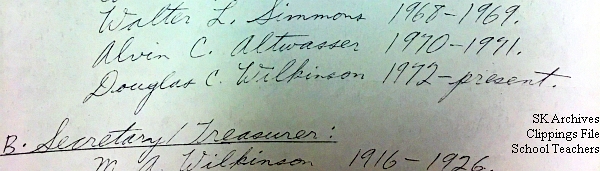 Walter L. Simmons 1968-1969.
Alvin C. Altwasser 1970-1971.
Douglas C. Wilkinson 1972-present.
B. Secretary/Treasurer:
M. A. Wilkinson 1916-1926.
SK Archives
Clippings File
School Teachers